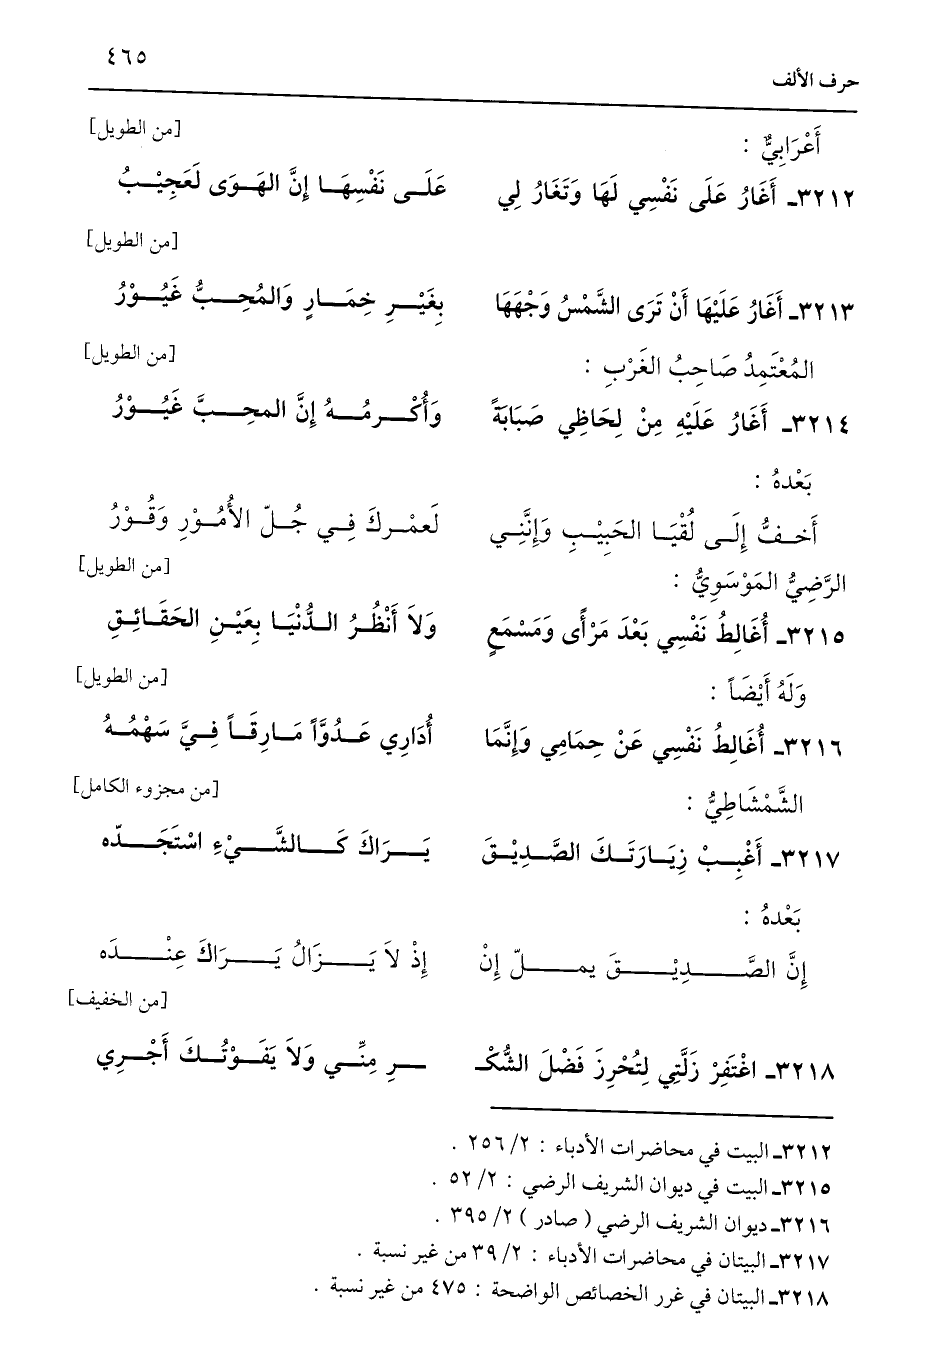 ٤٦٥
حرف الألف
[من الطويل]
أَعْرَابِيٌّ :
٣٢١٢ـ أَغَارُ عَلَى نَفْسِي لَهَا وَتَغَارُ لِي عَلَـى نَفْسِهَـا إِنَّ الهَـوَى لَعَجِيْـبُ
[من الطويل]
٣٢١٣ـ أَغَارُ عَلَيْهَا أَنْ تَرَى الشَّمْسُ وَجْهَهَا بِغَيْـرِ خِمَـارٍ وَالمُحِـبُّ غَيُـوْرُ
[من الطويل]
المُعْتَمِدُ صَاحِبُ الغَرْبِ :
٣٢١٤ـ أَغَارُ عَلَيْهِ مِنْ لِحَاظِي صَبَابَةً وَأُكْـرِمُـهُ إِنَّ المحِـبَّ غَيُـوْرُ
بَعْدهُ :
أَخـفُّ إِلَـى لُقْيَـا الحَبِيْـبِ وَإِنَّنِـي لَعمْـركَ فِـي جُـلّ الأُمُـوْرِ وَقُـوْرُ
[من الطويل]
الرَّضِيُّ المَوْسَوِيُّ :
٣٢١٥ـ أُغَالِطُ نَفْسِي بَعْدَ مَرْأَى وَمَسْمَعٍ وَلاَ أَنْظُـرُ الـدُّنْيَـا بِعَيْـنِ الحَقَـائِـقِ
[من الطويل]
وَلَهُ أَيْضَاً :
٣٢١٦ـ أُغَالِطُ نَفْسِي عَنْ حِمَامِي وَإِنَّمَا أُدَارِي عَـدُوَّاً مَـارِقَـاً فِـيَّ سَهْمُـهُ
[من مجزوء الكامل]
الشَّمْشَاطِيُّ :
٣٢١٧ـ أَغْبِـبْ زِيَـارَتَـكَ الصَّـدِيْـقَ يَـرَاكَ كَـالشَّـيْءِ اسْتَجَـدّه
بَعْدهُ :
إِنَّ الصَّـدِيْـقَ يمـلّ إِنْ إِذْ لاَ يَـزَالُ يَـرَاكَ عِنْـدَه
[من الخفيف]
٣٢١٨ـ اغْتَفِرْ زَلَّتِي لِتُحْرِزَ فَضْلَ الشُّكْـ ـرِ مِنِّـي وَلاَ يَفَـوْتُـكَ أَجْـرِي
٣٢١٢ـ البيت في محاضرات الأدباء : ٢/ ٢٥٦ .
٣٢١٥ـ البيت في ديوان الشريف الرضي : ٢/ ٥٢ .
٣٢١٦ـ ديوان الشريف الرضي ( صادر ) ٢/ ٣٩٥ .
٣٢١٧ـ البيتان في محاضرات الأدباء : ٢/ ٣٩ من غير نسبة .
٣٢١٨ـ البيتان في غرر الخصائص الواضحة : ٤٧٥ من غير نسبة .